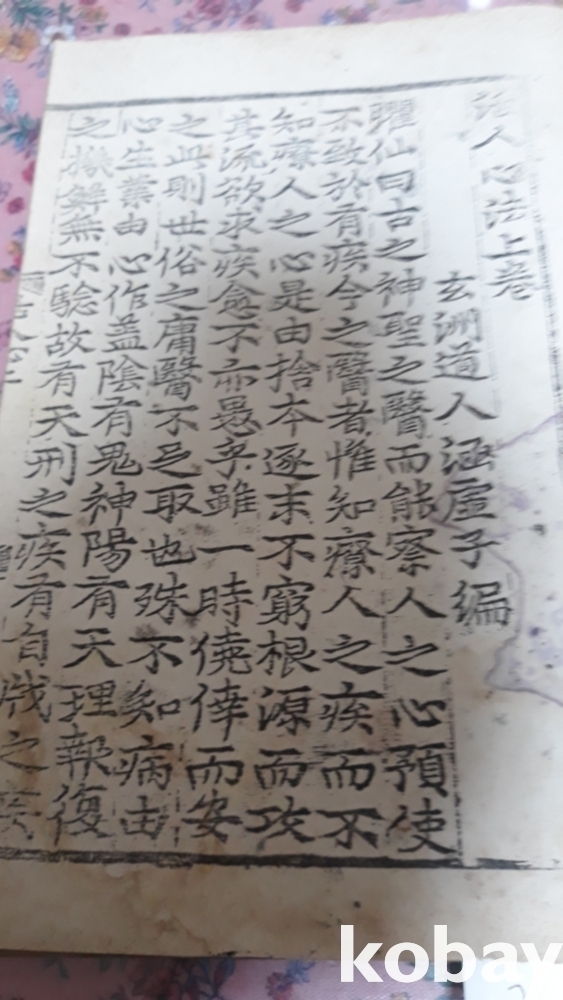 活人心法上卷
玄洲道人涵虛子編
臞仙曰古之神聖之醫而能察人之心預使
不致於有疾今之醫者惟知療人之疾而不
知療人之心是由捨本逐末不窮根源而攻
其流欲求疾愈不亦愚乎雖一時僥倖而安
之此則世俗之庸醫不足取也殊不知病由
心生業由心作盖陰有鬼神陽有天理報復
之機鮮無不驗故有天刑之疾有自戕之疾
kobay